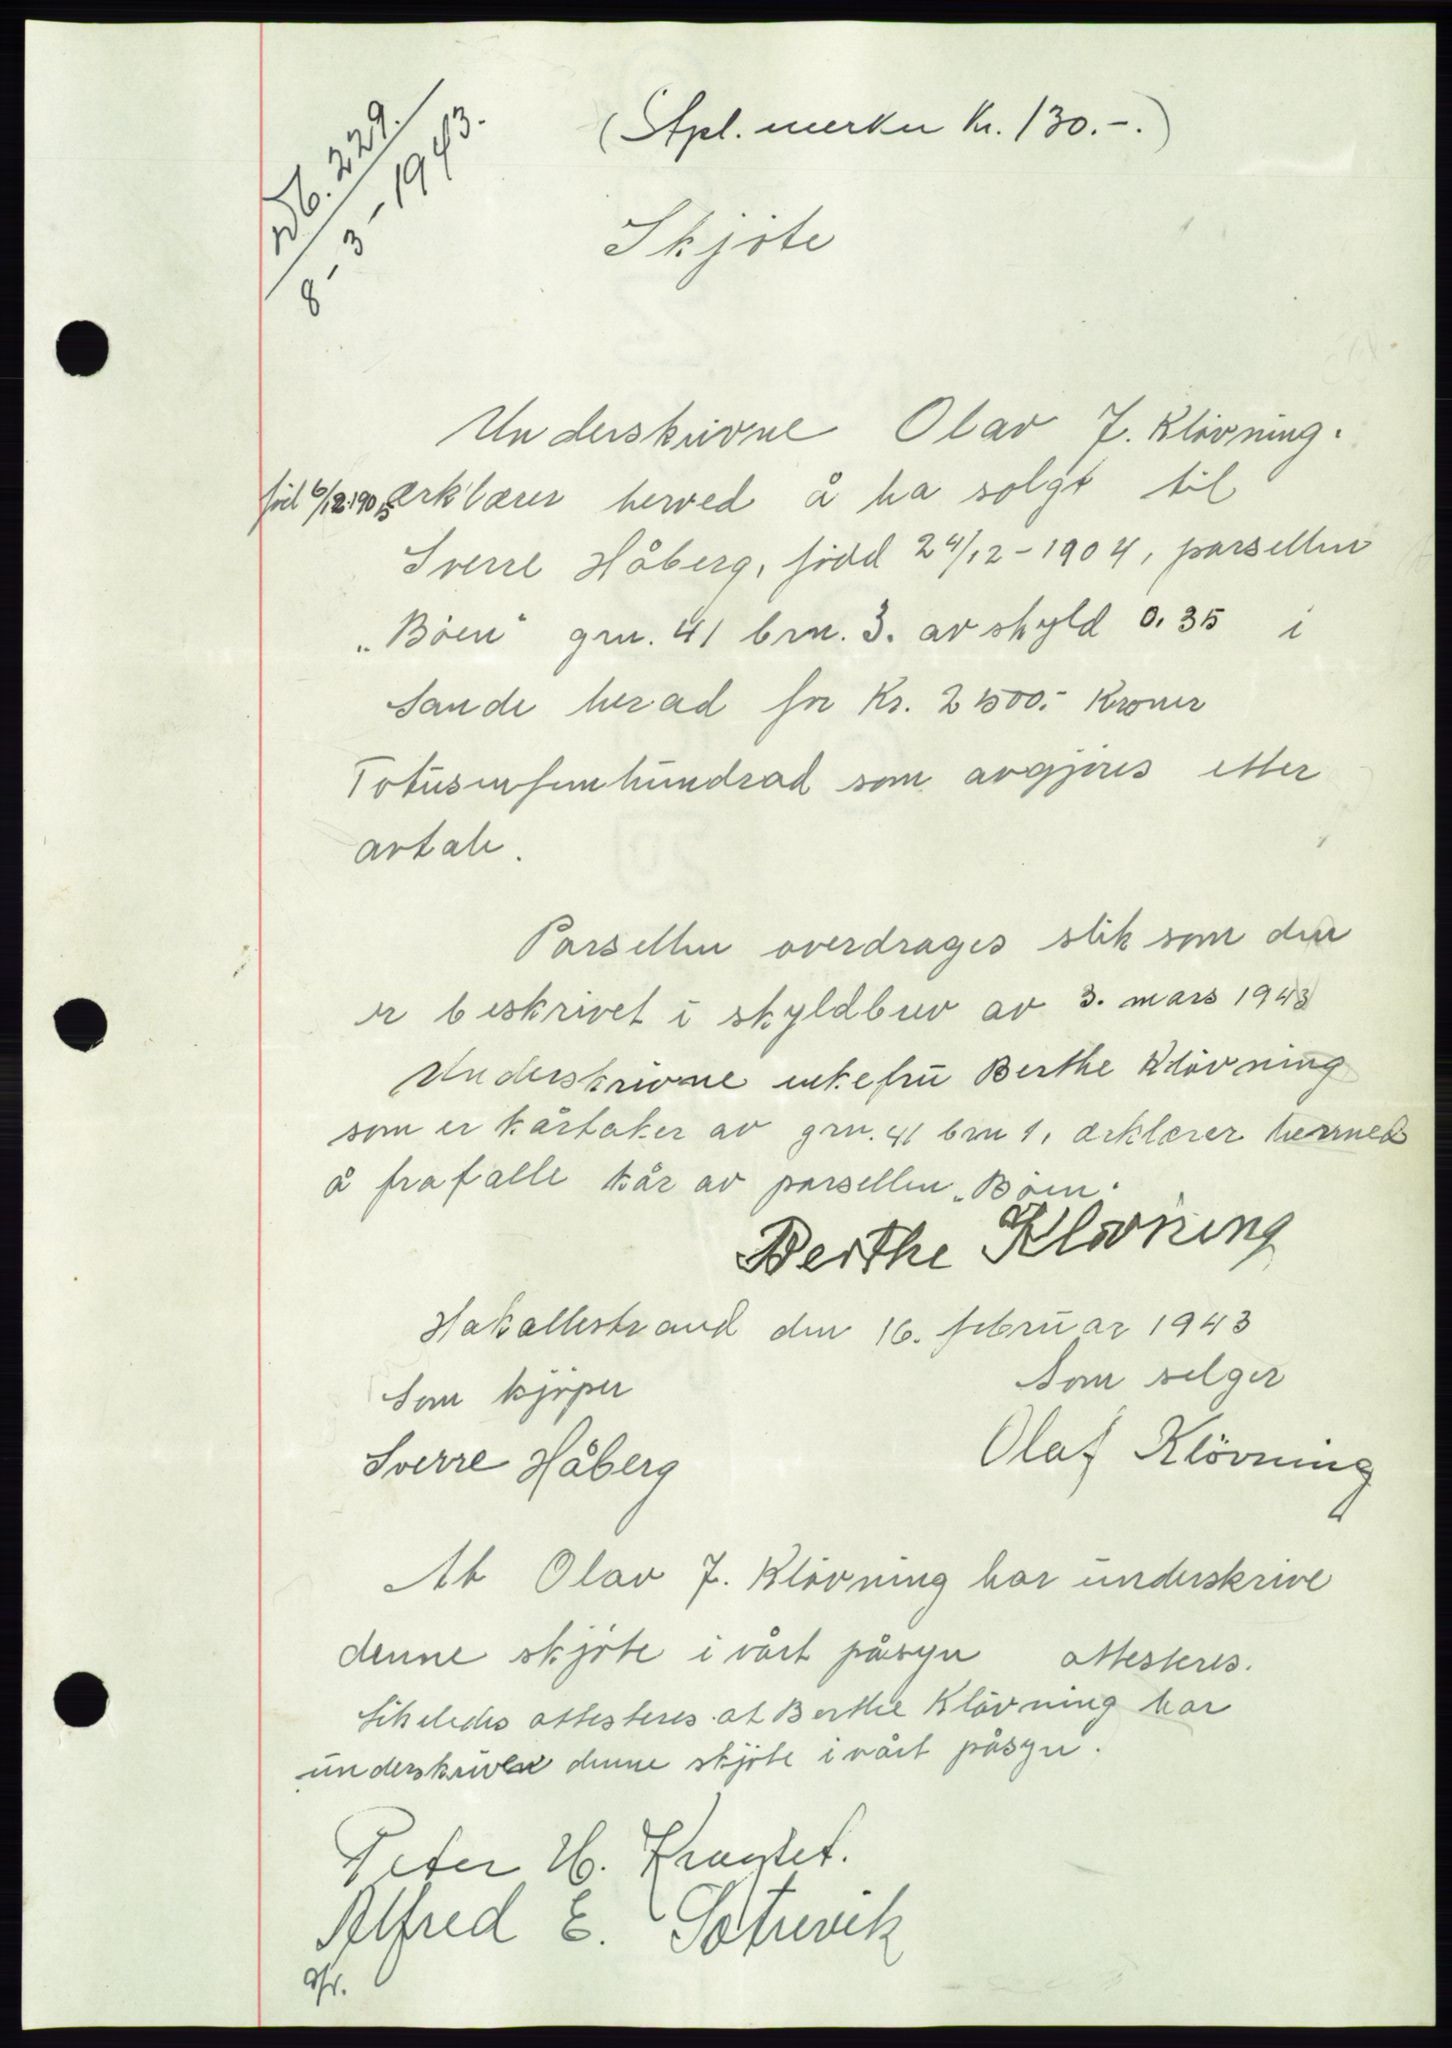 Db. 229.
8-3-1943.
(Stpl. merker kr. 130.-.)
Skjöte
Underskrivne Olav J. Klövning.
föd 6/12-1905 ærklærer herved å ha solgt til
Sverre Håberg, född 24/12-1904, parsellen
„Böen" grn. 41 brn. 3. av skyld 0.35 i
Sande herad for Kr. 2500.- Kroner
Totusenfemhundrad som avgjöres etter
avtale.
Parsellen overdrages slik som den
er beskrivet i skyldbrev av 3. mars 1943
Underskrivne enkefru Berthe Klövning
som er kårtaker av grn. 41 brn 1, ærklærer herved
å frafalle kår av parsellen „Böen".
Berthe Klövning
Hakallestrand den 16. februar 1943
Som kjöper
Som selger
Sverre Håberg
Olaf Klövning
At Olav J. Klövning har underskrive
denne skjöte i vårt påsyn attesteres.
Likeledes attesteres at Berthe Klövning har
underskrives denne skjöte i vårt påsyn.
Peter H.
Alfred E. Sætrevik